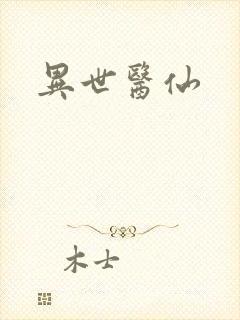 異世醫仙
木士